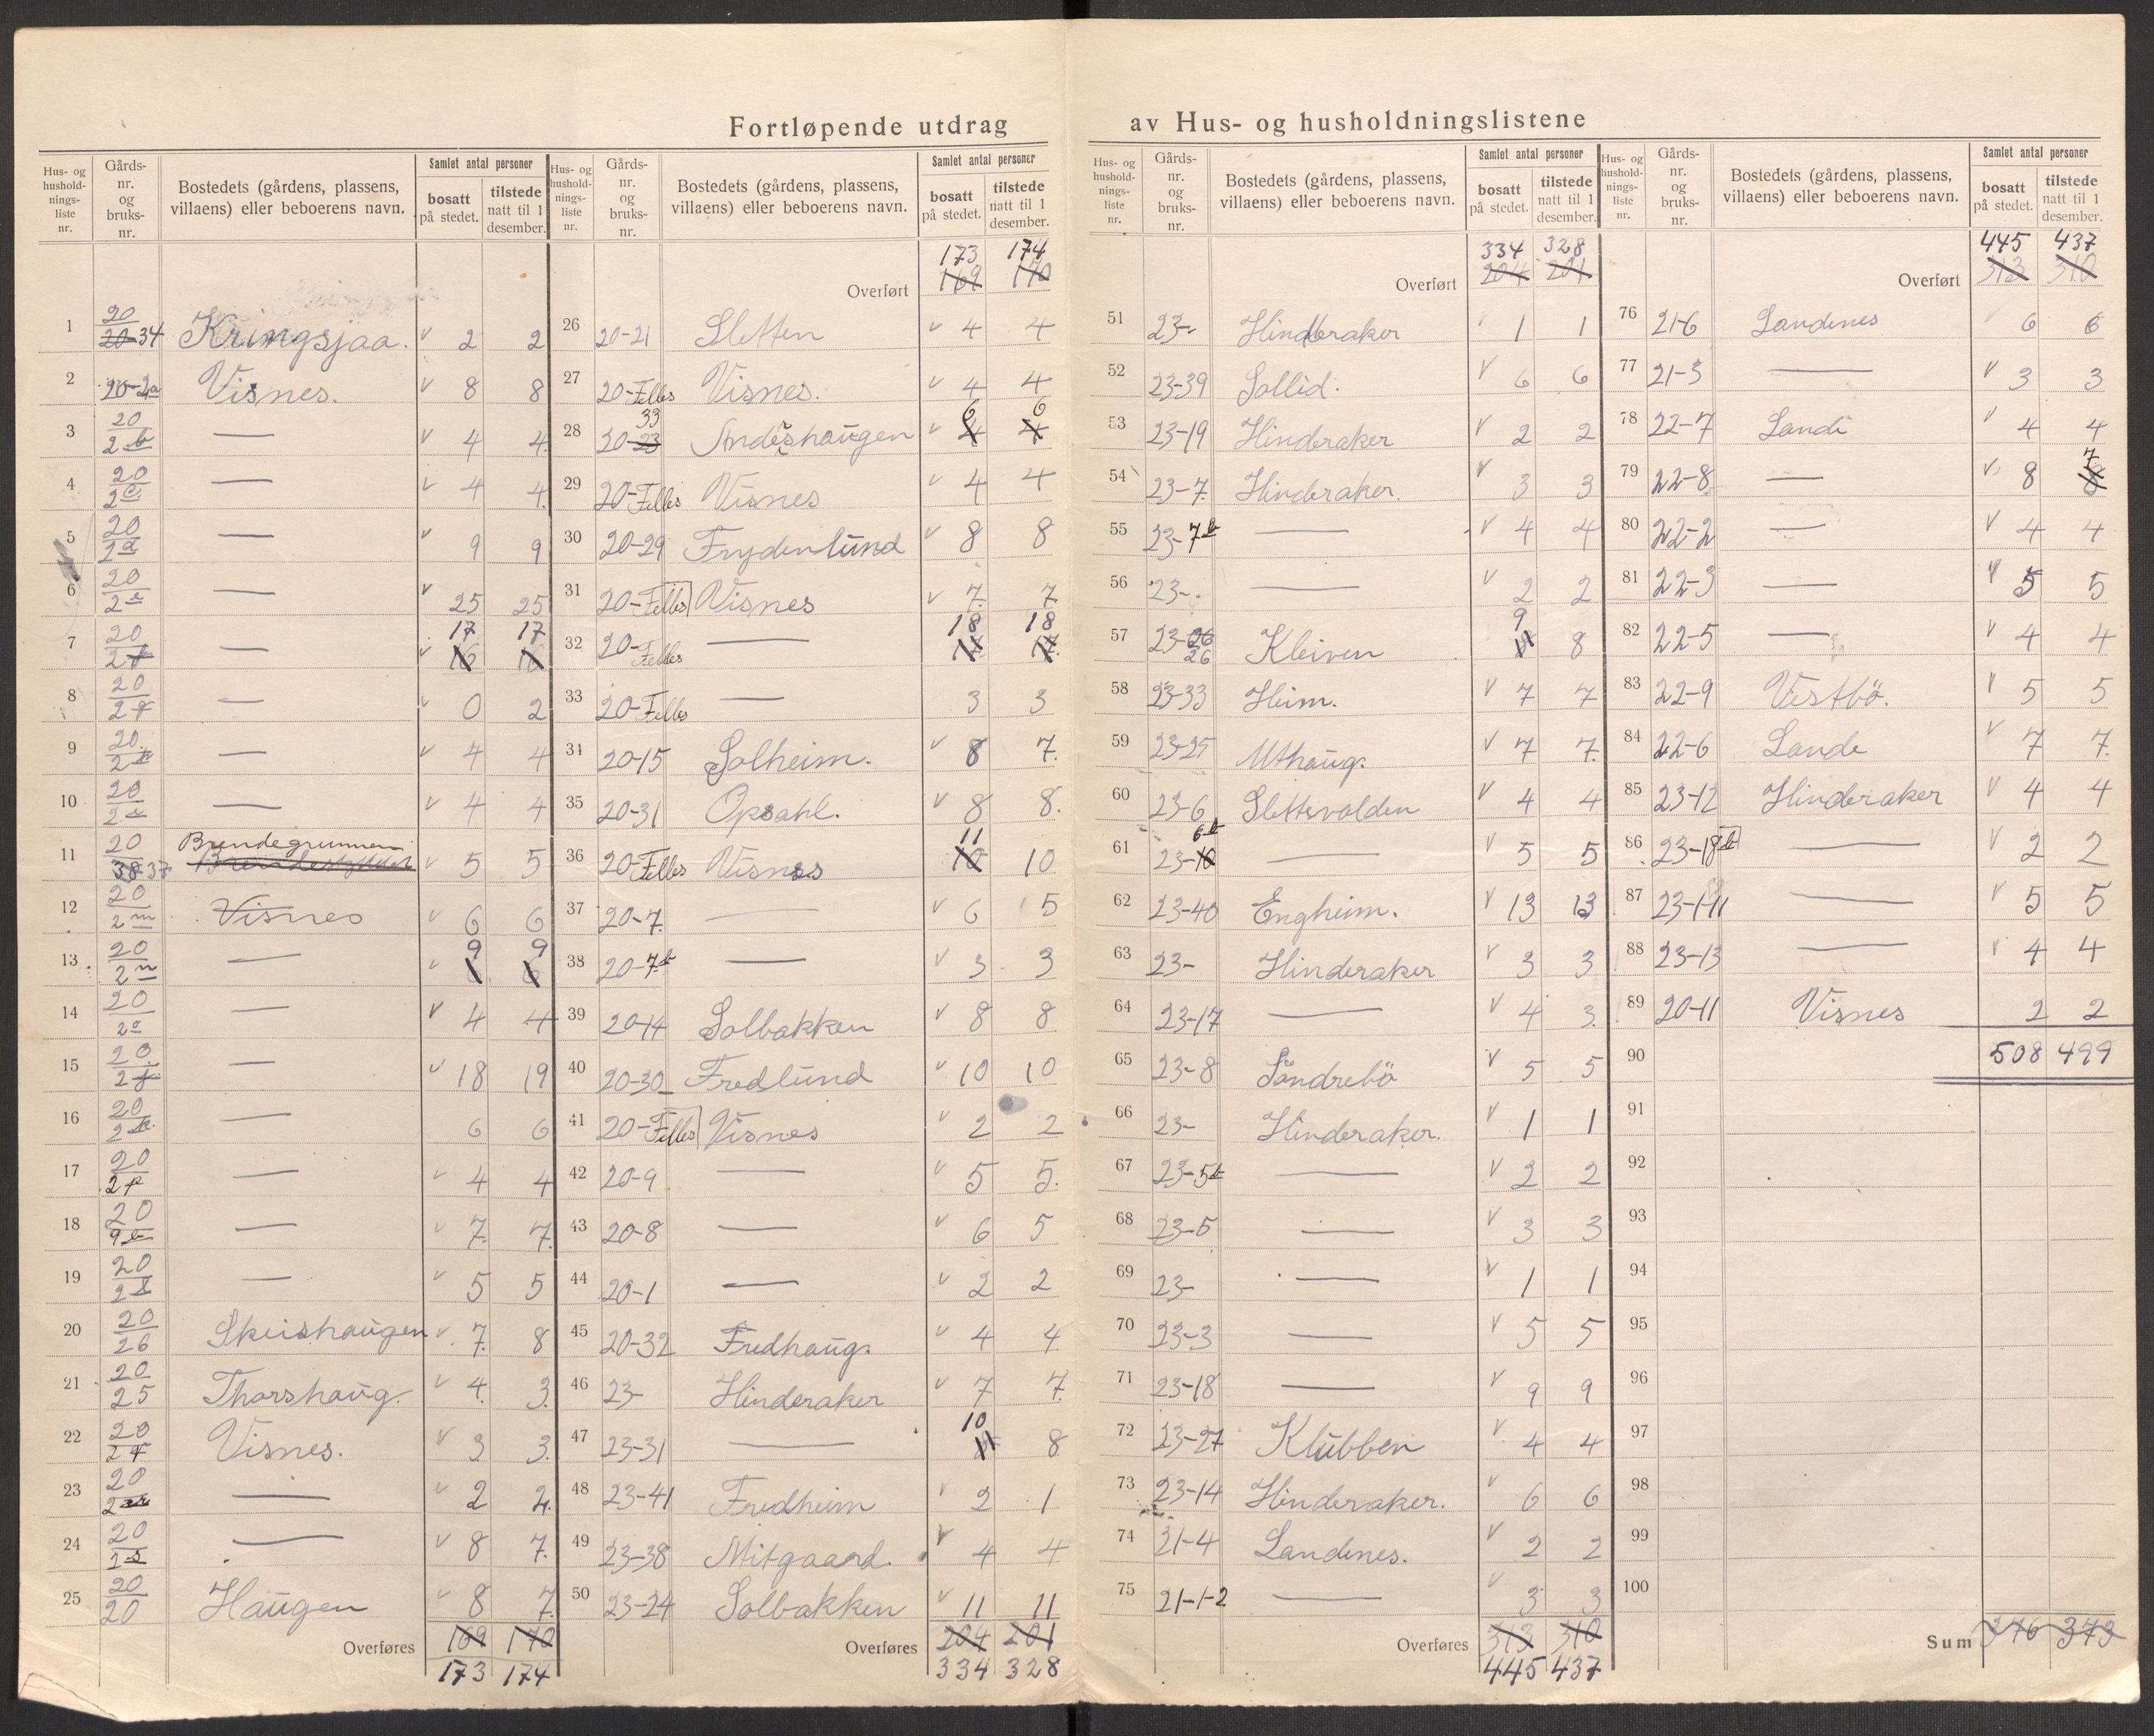 Fortløpende utdrag av Hus- og husholdningslistene
Hus- og hushold-nings-liste nr. | Gårds-nr. og bruks-nr. | Bostedets (gårdens, plassens, villaens) eller beboerens navn. | Samlet antal personer bosatt på stedet. | tilstede natt til 1 desember.
1 20 20-34 Kringsjaa. v 2 2
2 20-2a Visnes. v 8 8
3 20 2b — v 4 4
4 20 2c — v 4 4
5 20 2d — v 9 9
6 20 2e — v 25 25
7 20 2f — v 16 17 16 17
8 20 2g — v 0 2
9 20 2h — v 4 4
10 20 2i — v 4 4
11 20 38 37 Brendegrunnen v 5 5
12 20 2m Visnes v 6 6
13 20 2n — v 9 9
14 20 2o — v 4 4
15 20 2j — v 18 19
16 20 2k — 6 6
17 20 2p — v 4 4
18 20 9b — v 7 7
19 20 2l — v 5 5
20 20 26 Skeishaugen v 7 8
21 20 25 Thorshaug. v 4 3
22 20 2q Visnes. v 3 3
23 20 — v 2 2
24 20 2s — v 8 7
25 20 20 Haugen v 8 7
Overføres 169 170
173 174
Hus- og hushold-nings-liste nr. | Gårds-nr. og bruks-nr. | Bostedets (gårdens, plassens, villaens) eller beboerens navn. | Samlet antal personer bosatt på stedet. | tilstede natt til 1 desember.
173 174
Overført 169 170
26 20-21 Sletten v 4 4
27 20-Felles Visnes. v 4 4
28 20-23 33 Andeshaugen v 4 6 4 6
29 20-Felles Visnes v 4 4
30 20-29 Frydenlund v 8 8
31 20-Felles Visnes v 7 7
32 20-Felles — 18 18
33 20-Felles — 3 3
34 20-15 Solheim. v 8 7
35 20-31 Opsahl. v 8 8
36 20-Felles Visnes 10 11 10
37 20-7 — v 6 5
38 20-7b — v 3 3
39 20-14 Solbakken v 8 8
40 20-30 Fredlund v 10 10
41 20-Felles Visnes v 2 2
42 20-9 — v 5 5
43 20-8 — v 6 5
44 20-1 — v 2 2
45 20-32 Fredhaug. v 4 4
46 23- Hinderaker v 7 7
47 23-31 — 11 10 8
48 23-41 Fredheim v 2 1
49 23-38 Mitgaard. v 4 4
50 23-24 Solbakken v 11 11
Overføres 204 201
334 328
Hus- og hushold-nings-liste nr. | Gårds-nr. og bruks-nr. | Bostedets (gårdens, plassens, villaens) eller beboerens navn. | Samlet antal personer bosatt på stedet. | tilstede natt til 1 desember.
334 328
Overført 204 201
51 23- Hinderaker v 1 1
52 23-39 Sollid. v 6 6
53 23-19 Hinderaker v 2 2
54 23-7 Hinderaker. v 3 3
55 23-7b — v 4 4
56 23- — v 2 2
57 23-26 26 Kleiven 11 9 8
58 23-33 Heim. v 7 7
59 23-25 Uthaug. v 7 7
60 23-6 Slettevolden v 4 4
61 23-10 6b — v 5 5
62 23-40 Engheim. v 13 13
63 23- Hinderaker v 3 3
64 23-17 — v 4 3
65 23-8 Söndrebö v 5 5
66 23- Hinderaker. v 1 1
67 23-5b — v 2 2
68 23-5 — v 3 3
69 23- — v 1 1
70 23-3 — v 5 5
71 23-18 — v 9 9
72 23-27 Klubben v 4 4
73 23-14 Hinderaker. v 6 6
74 21-4 Landenes. v 2 2
75 21-1-2 — v 3 3
Overføres 313 310
445 437
Hus- og hushold-nings-liste nr. | Gårds-nr. og bruks-nr. | Bostedets (gårdens, plassens, villaens) eller beboerens navn. | Samlet antal personer bosatt på stedet. | tilstede natt til 1 desember.
445 437
Overført 313 310
76 21-6 Landenes v 6 6
77 21-3 — v 3 3
78 22-7 Lande v 4 4
79 22-8 — v 8 8 7
80 22-2 — v 4 4
81 22-3 — v 5 5
82 22-5 — v 4 4
83 22-9 Vestbö. v 5 5
84 22-6 Lande v 7 7
85 23-12 Hinderaker v 4 4
86 23-18b — v 2 2
87 23-1-11 — v 5 5
88 23-13 — v 4 4
89 20-11 Visnes 2 2
90 508 499
91
92
93
94
95
96
97
98
99
100
Sum 376 373